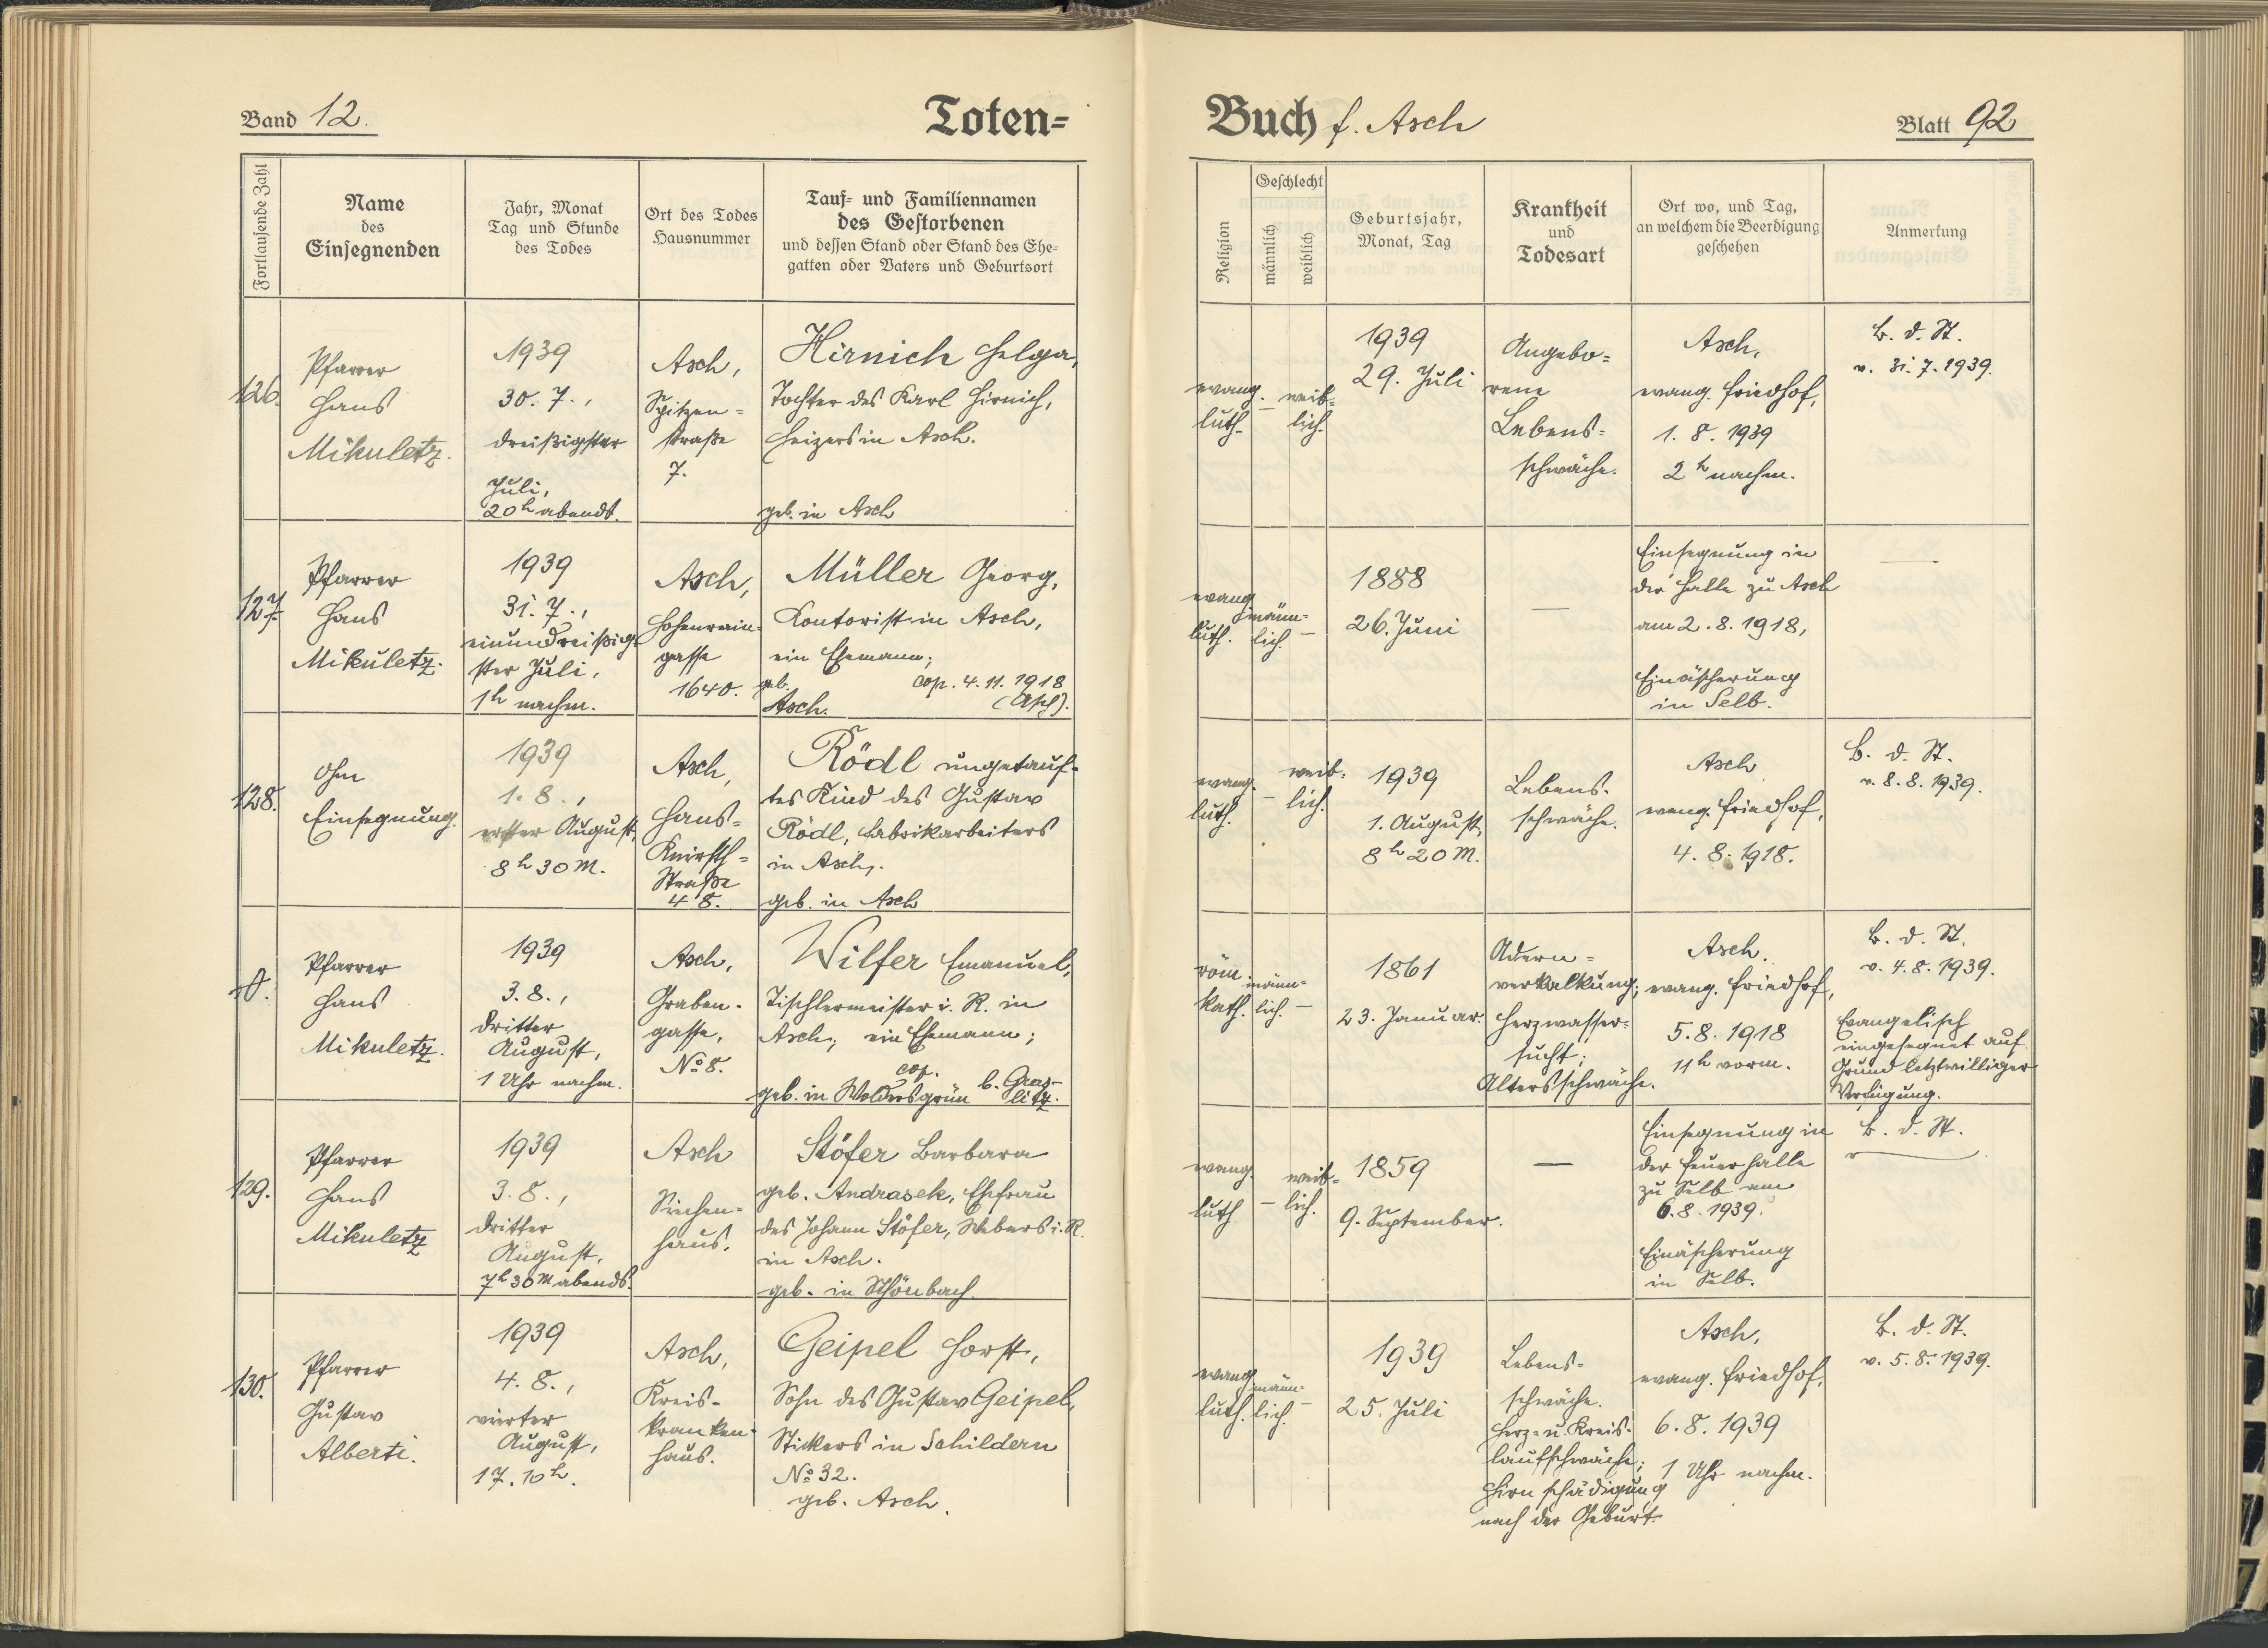 Band 12.
Toten=
Fortlaufende Zahl
Name
des
Einsegnenden
Jahr, Monat
Tag und Stunde
des Todes
Ort des Todes
Hausnummer
Tauf- und Familiennamen
des Gestorbenen
und dessen Stand oder Stand des Ehe-
gatten oder Vaters und Geburtsort
126.
Pfarrer
Hans
Mikuletz.
1939
30. 7.,
dreißigster
Juli,
20h abends.
Asch,
Spitzen=
straße
7.
Hirnich Helga,
Tochter des Karl Hirnich,
Heizers in Asch.
geb. in Asch
127.
Pfarrer
Hans
Mikuletz.
1939
31. 7.,
einunddreißig-
ster Juli,
1h nachm.
Asch,
Hohenrain-
gasse
1640.
Müller Georg,
Kontorist in Asch,
ein Ehemann;
geb. cop. 4. 11. 1918
Asch. (Asch).
128.
Ohne
Einsegnung.
1939
1. 8.,
erster August,
8h 30 M.
Asch,
Hans=
Knirsch=
Straße
48.
Rödl ungetauf-
tes Kind des Gustav
Rödl, Fabrikarbeiters
in Asch.
geb. in Asch
Pfarrer
Hans
Mikuletz.
1939
3. 8.,
dritter
August,
1 Uhr nachm.
Asch,
Graben-
gasse,
No 8.
Wilfer Emanuel,
Tischlermeister i. R. in
Asch; ein Ehemann;
cop.
geb. in b. Gras-
litz.
129.
Pfarrer
Hans
Mikuletz
1939
3. 8.,
dritter
August,
7h 30 M abends.
Asch
Siechen-
haus.
Stöfer Barbara
geb. Andrasek, Ehefrau
des Johann Stöfer, Webers i. R.
in Asch.
geb. in Schönbach
130.
Pfarrer
Gustav
Alberti.
1939
4. 8.,
vierter
August,
17.10h.
Asch,
Kreis-
kranken-
haus.
Geipel Horst,
Sohn des Gustav Geipel,
Stickers in Schildern
No 32.
geb. Asch.
Buch f. Asch
Blatt 92
Religion
Geschlecht
männlich
weiblich
Geburtsjahr,
Monat, Tag
Krankheit
und
Todesart
Ort wo, und Tag,
an welchem die Beerdigung
geschehen
Anmerkung
evang.
luth.
–
weib-
lich.
1939
29. Juli
Angebo=
rene
Lebens=
schwäche.
Asch,
evang. Friedhof,
1. 8. 1939
2h nachm.
B. d. St.
v. 31. 7. 1939.
evang.
luth.
männ-
lich.
–
1888
26. Juni
—
Einsegnung in
der Halle zu Asch
am 2. 8. 1918,
Einäscherung
in Selb.
—
evang.
luth.
–
weib-
lich.
1939
1. August,
8h 20 M.
Lebens-
schwäche.
Asch
evang. Friedhof,
4. 8. 1918.
B. d. St.
v. 8. 8. 1939.
röm.
kath.
männ-
lich.
–
1861
23. Januar.
Adern=
verkalkung;
Herzwasser-
sucht;
Altersschwäche.
Asch.
evang. Friedhof,
5. 8. 1918
11h vorm.
B. d. St.
v. 4. 8. 1939.
Evangelisch
eingesegnet auf
Grund letztwilliger
Verfügung.
evang.
luth
–
weib-
lich.
1859
9. September.
—
Einsegnung in
der Feuerhalle
zu Selb am
6. 8. 1939.
Einäscherung
in Selb.
B. d. St.
evang.
luth.
männ-
lich.
–
1939
25. Juli
Lebens-
schwäche.
Herz- u. Kreis-
laufschwäche;
Hirnschädigung
nach der Geburt.
Asch,
evang. Friedhof,
6. 8. 1939
1 Uhr nachm.
B. d. St.
v. 5. 8. 1939.